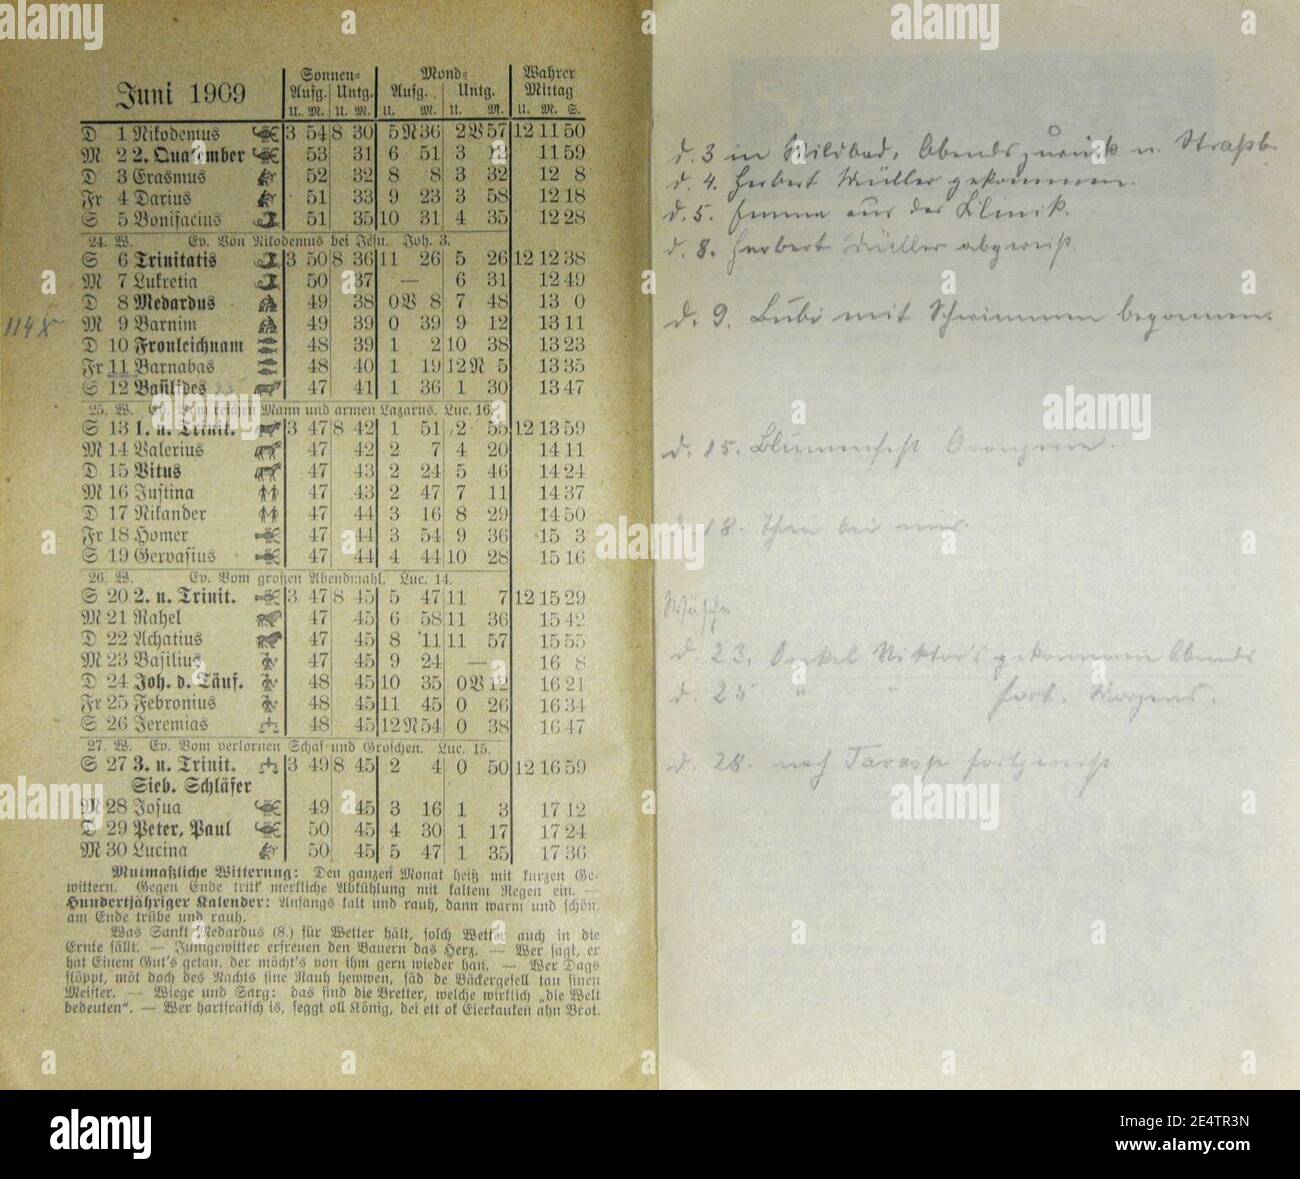 Juni 1909 Sonnen= Mond= Wahrer
Aufg. Untg. Aufg. Untg. Mittag
U. M. U. M. U. M. U. M. U. M. S.
D 1 Nikodemus 3 54 8 30 5 N 36 2 V 57 12 11 50
M 2 2. Quatember 53 31 6 51 3 12 11 59
D 3 Erasmus 52 32 8 8 3 32 12 8
Fr 4 Darius 51 33 9 23 3 58 12 18
S 5 Bonifacius 51 35 10 31 4 35 12 28
24. W. Ev. Von Nikodemus bei Jesu. Joh. 3.
S 6 Trinitatis 3 50 8 36 11 26 5 26 12 12 38
M 7 Lukretia 50 37 — 6 31 12 49
D 8 Medardus 49 38 0 V 8 7 48 13 0
M 9 Barnim 49 39 0 39 9 12 13 11
D 10 Fronleichnam 48 39 1 2 10 38 13 23
Fr 11 Barnabas 48 40 1 19 12 N 5 13 35
S 12 Basilides 47 41 1 36 1 30 13 47
25. W. Ev. Vom reichen Mann und armen Lazarus. Luc. 16.
S 13 1. n. Trinit. 3 47 8 42 1 51 2 55 12 13 59
M 14 Valerius 47 42 2 7 4 20 14 11
D 15 Vitus 47 43 2 24 5 46 14 24
M 16 Justina 47 43 2 47 7 11 14 37
D 17 Nikander 47 44 3 16 8 29 14 50
Fr 18 Homer 47 44 3 54 9 36 15 3
S 19 Gervasius 47 44 4 44 10 28 15 16
26. W. Ev. Vom großen Abendmahl. Luc. 14.
S 20 2. n. Trinit. 3 47 8 45 5 47 11 7 12 15 29
M 21 Rahel 47 45 6 58 11 36 15 42
D 22 Achatius 47 45 8 11 11 57 15 55
M 23 Basilius 47 45 9 24 — 16 8
D 24 Joh. d. Täuf. 48 45 10 35 0 V 12 16 21
Fr 25 Febronius 48 45 11 45 0 26 16 34
S 26 Jeremias 48 45 12 N 54 0 38 16 47
27. W. Ev. Vom verlornen Schaf und Groschen. Luc. 15.
S 27 3. n. Trinit. 3 49 8 45 2 4 0 50 12 16 59
Sieb. Schläfer
M 28 Josua 49 45 3 16 1 3 17 12
D 29 Peter, Paul 50 45 4 30 1 17 17 24
M 30 Lucina 50 45 5 47 1 35 17 36
Mutmaßliche Witterung: Den ganzen Monat heiß mit kurzen Ge-
wittern. Gegen Ende tritt merkliche Abkühlung mit kaltem Regen ein. —
Hundertjähriger Kalender: Anfangs kalt und rauh, dann warm und schön,
am Ende trübe und rauh.
Was Sankt Medardus (8.) für Wetter hält, solch Wetter auch in die
Ernte fällt. — Junigewitter erfreuen den Bauern das Herz. — Wer sagt, er
hat Einem Gut's getan, der möcht's von ihm gern wieder han. — Wer Dags
slöppt, möt doch des Nachts sine Rauh hewwen, säd de Bäckergesell tau sinen
Meister. — Wiege und Sarg: das sind die Bretter, welche wirklich „die Welt
bedeuten". — Wer hartfratsch is, seggt oll König, dei ett ok Eierkauken ahn Brot.
114 X
d. 3 in Wildbad, Abends zurück n. Straßb.
d. 4. Herbert Müller gekommen.
d. 5. Emma aus der Klinik.
d. 8. Herbert Müller abgereist.
d. 9. Lubi mit Schwimmen begonnen.
d. 15. Blumenfest Orangerie.
d. 18. bei mir.
Wäsche
d. 23. Onkel Viktor's gekommen Abends
d. 25 " " fort. Morgens.
d. 28. nach Tarasp fortgereist
alamy
Image ID: 2E4TR3N
www.alamy.com